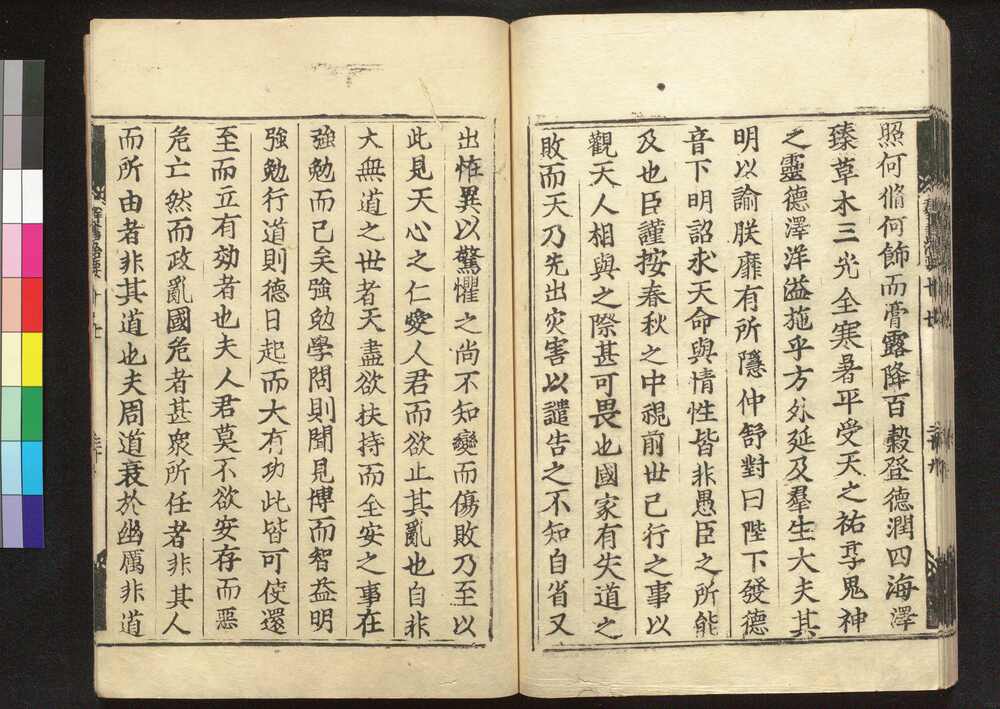 照何脩何飾而膏露降百穀登德潤四海澤
臻草木三光全寒暑平受天之祐享鬼神
之靈德澤洋溢施乎方外延及羣生大夫其
明以諭朕靡有所隱仲舒對曰陛下發德
音下明詔求天命與情性皆非愚臣之所能
及也臣謹按春秋之中視前世已行之事以
觀天人相與之際甚可畏也國家有失道之
敗而天乃先出灾害以譴告之不知自省又
出恠異以驚懼之尚不知變而傷敗乃至以
此見天心之仁愛人君而欲止其亂也自非
大無道之世者天盡欲扶持而全安之事在
強勉而已矣強勉學問則聞見博而智益明
強勉行道則德日起而大有功此皆可使還
至而立有効者也夫人君莫不欲安存而惡
危亡然而政亂國危者甚衆所任者非其人
而所由者非其道也夫周道衰於幽厲非道